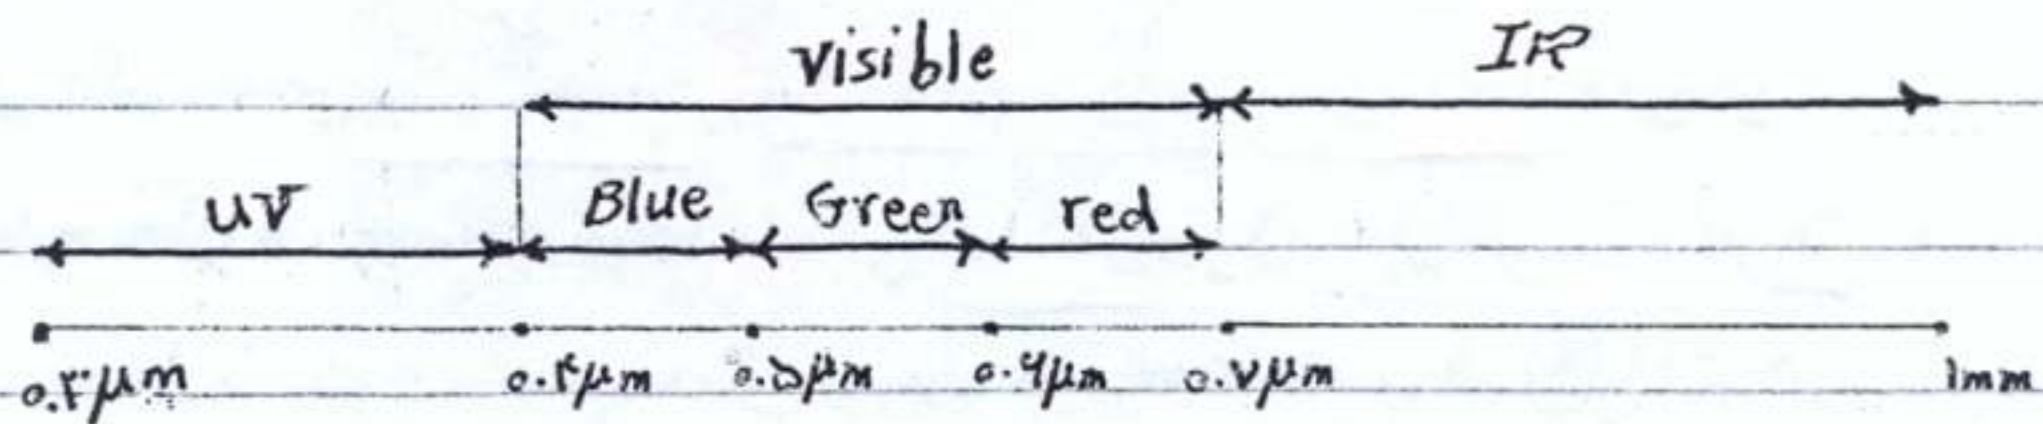 visible IR
UV Blue Green red
0.۳μm 0.۴μm 0.۵μm 0.۶μm 0.۷μm 1mm